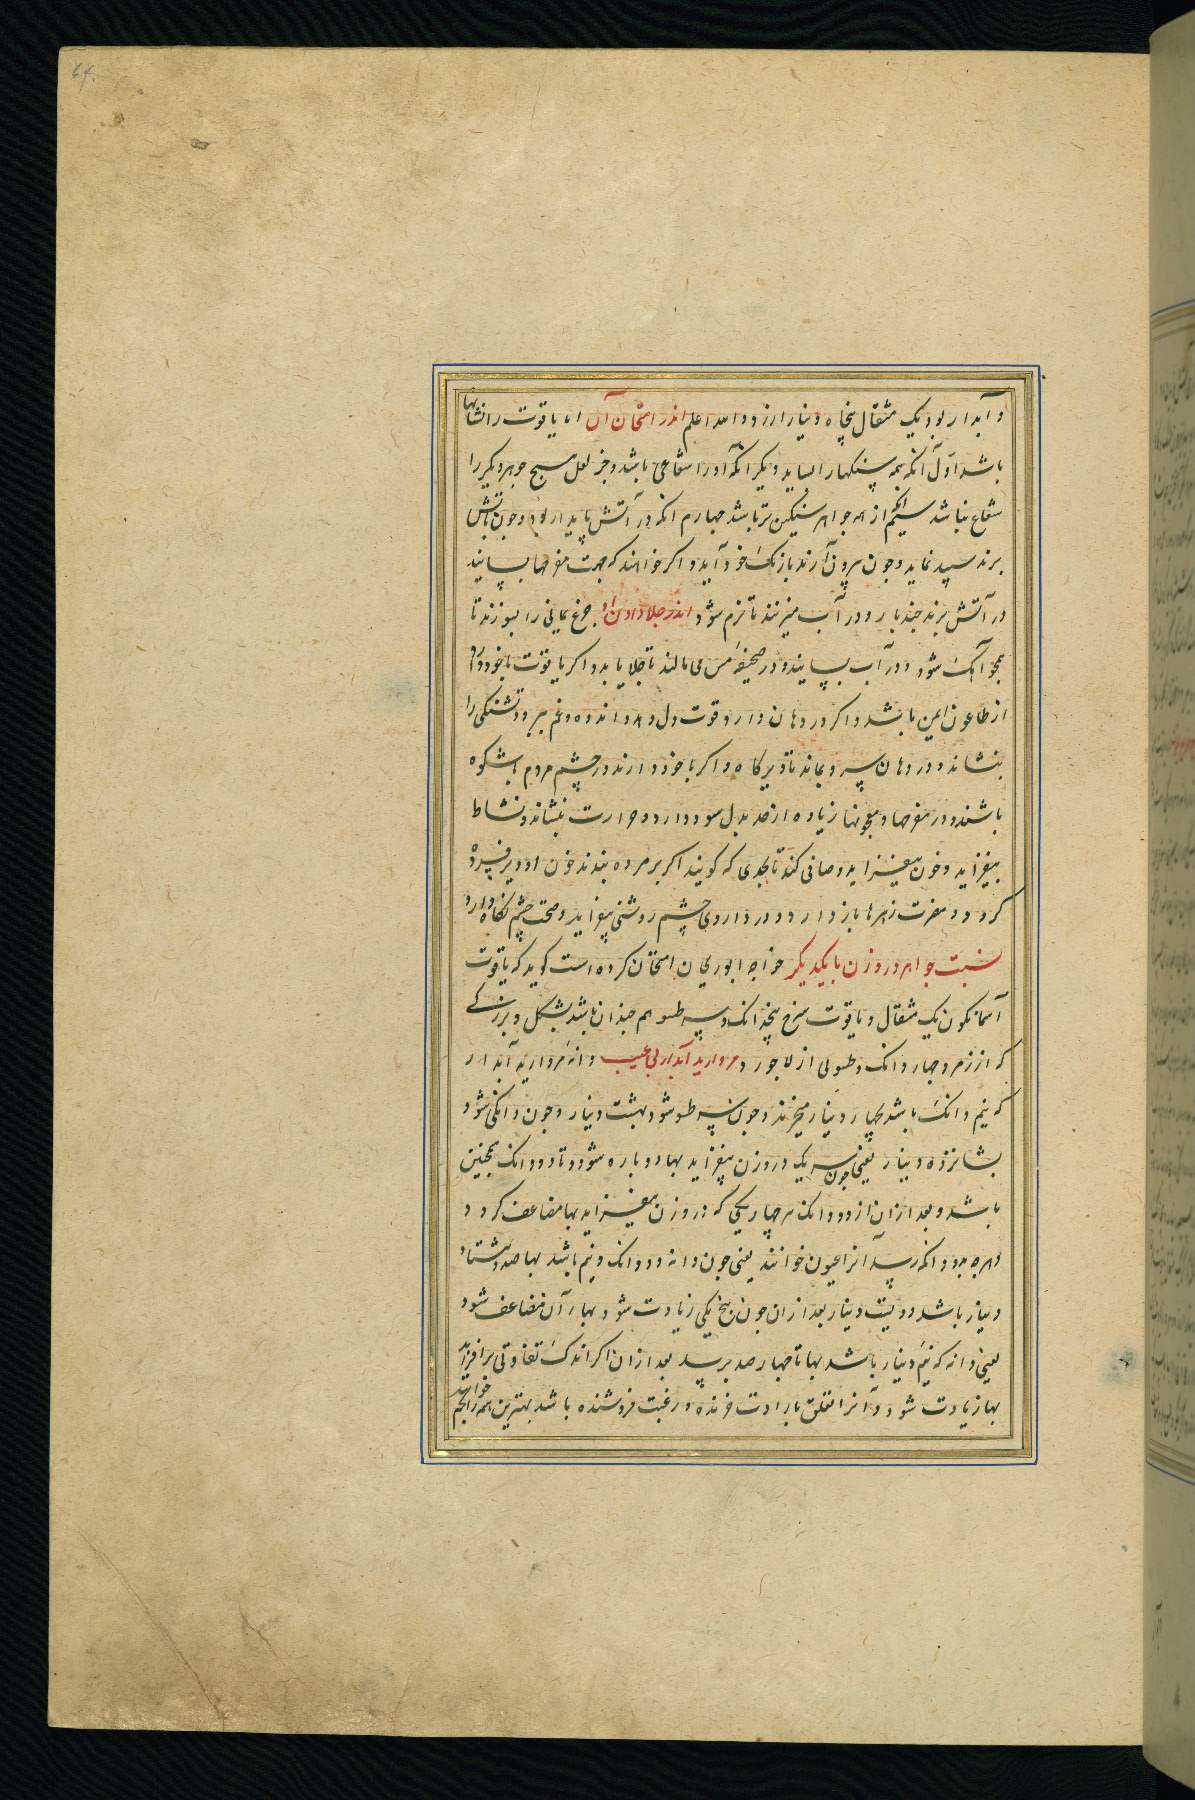 64.
و آبدار بود یک مثقال پنجاه دینار ارزد و الله اعلم اندر امتحان آن اما یاقوت را نشانها
باشد اول آنکه همه سنکها را بساید دیکر آنکه او را شعاعی باشد و جز لعل هیچ جوهر دیکر را
شعاع نباشد سیم آنکه از همه جواهر سنکین تر باشد چهارم آنکه در آتش پایدار بود و چون بآتش
برند سپید نماید و چون بیرون آرند باز برنک خود آید و اکر خواهند که جهت مفرحها بسایند
در آتش برند چند بار و در آب میزنند تا نرم شود اندر جلا دادن او جزع یمانی را بسوزند تا
همچو آهک شود و در آب بسایند و در صحیفه مس می مالند تا جلا یابد و اکر یاقوت با خود دارد
از طاعون ایمن باشد و اکر در دهان دارد قوت دل دهد و اندوه و غم ببرد و تشنکی را
بنشاند و در دهان سرد بماند تا دیرکاه و اکر با خود دارند در چشم مردم باشکوه
باشند و در مفرحها و معجونها زیاده از حد بدل سود دارد و حرارت بنشاند و نشاط
بیفزاید و خون بیفزاید و صافی کند تا بحدی که کویند اکر بر مرده بندند خون او دیر فسرده
کردد و مضرت زهرها باز دارد و در داروی چشم روشنی بیفزاید و صحت چشم نکاه دارد
نسبت جواهر در وزن با یکدیکر خواجه ابوریحان امتحان کرده است کوید که یاقوت
آسمانکون یک مثقال و یاقوت سرخ پنج دانک و سه طسو هم چندان باشد بشکل و بزرکی
که از زمرد چهار دانک و طسوئی از لاجورد و مروارید آبدار بی عیب دانه مروارید آبدار
که نیم دانک باشد بچهار دینار میخرند و چون سه طسو شود بهشت دینار و چون دانکی شود
بشانزده دینار یعنی چون سه یک در وزن بیفزاید بها دوباره شود و تا دو دانک همچنین
باشد و بعد از آن از دو دانک هر چهار یکی که در وزن بیفزاید بها مضاعف کردد
و هر چه بدو دانک رسد آنرا عیون خوانند یعنی چون دانه دو دانک و نیم باشد بها صد و هشتاد
دینار باشد و دویست دینار بعد از آن چون پنج یکی زیادت شود بهاء آن مضاعف شود
یعنی دانه که نیم دینار باشد بها تا چهار صد برسد بعد از آن اکر اندک تفاوتی بر افزاید
بها زیادت شود و آنرا تعلق بارادت خرنده و رغبت فروشنده باشد بهترین همه را نجم خوانند